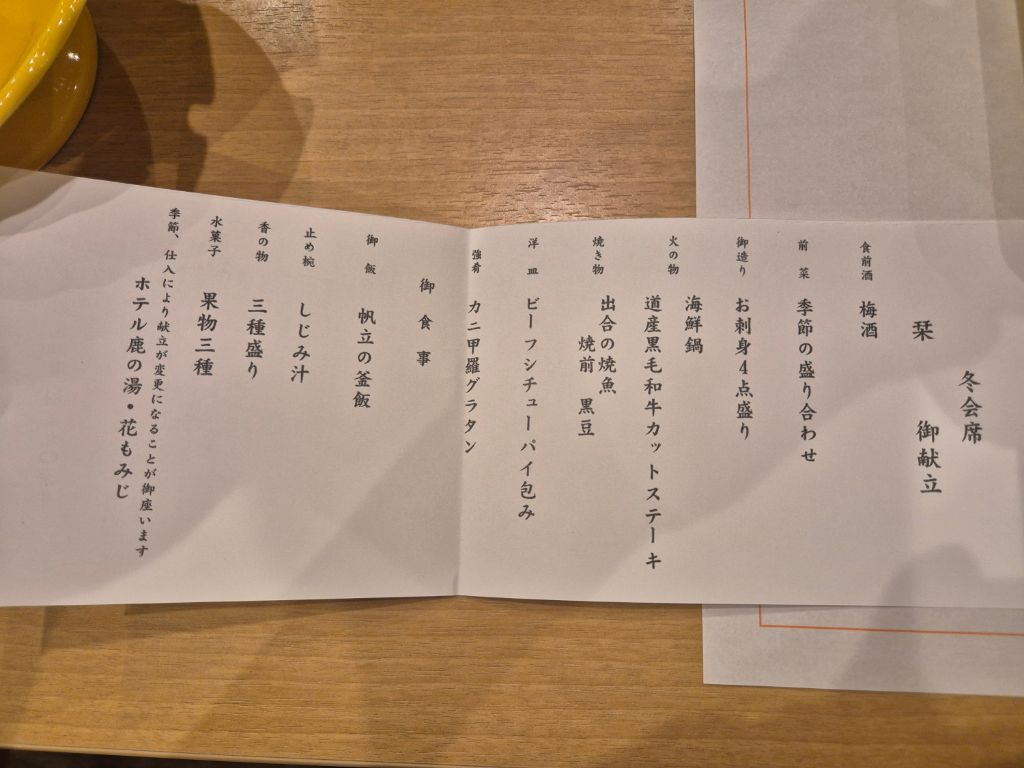 冬会席
栞　御献立
食前酒　梅酒
前菜　季節の盛り合わせ
御造り　お刺身4点盛り
火の物　海鮮鍋
道産黒毛和牛カットステーキ
焼き物　出合の焼魚
焼前　黒豆
洋皿　ビーフシチューパイ包み
強肴　カニ甲羅グラタン
御食事
御飯　帆立の釜飯
止め椀　しじみ汁
香の物　三種盛り
水菓子　果物三種
季節、仕入により献立が変更になることが御座います
ホテル鹿の湯・花もみじ